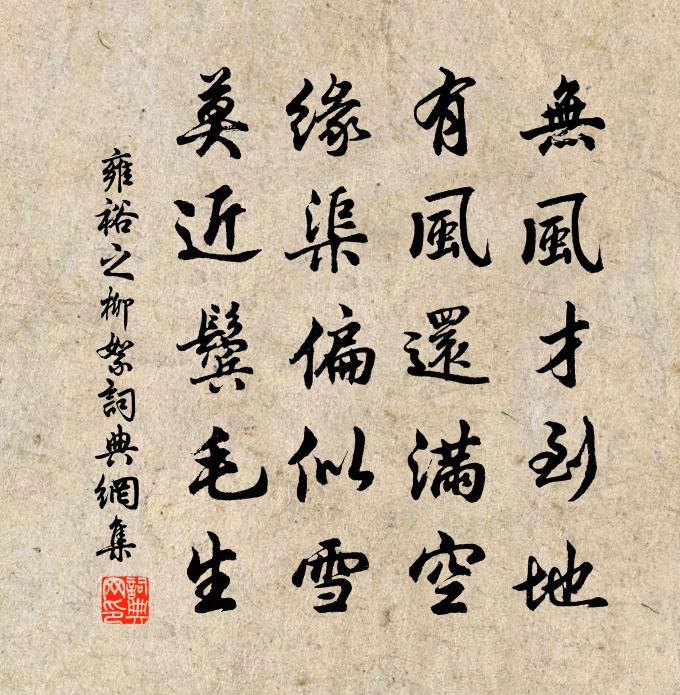 無風才到地
有風還滿空
緣渠偏似雪
莫近鬢毛生
雍裕之柳絮詞典網集
詞典網印